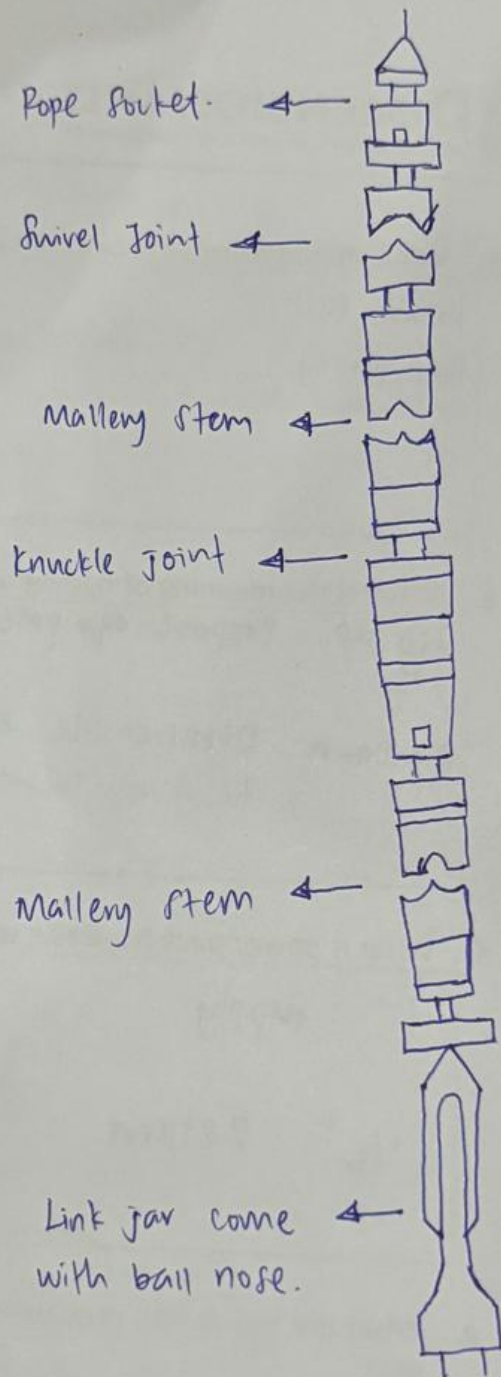 Rope Socket.
Swivel Joint
Mallery Stem
Knuckle joint
Mallery Stem
Link jar come
with ball nose.